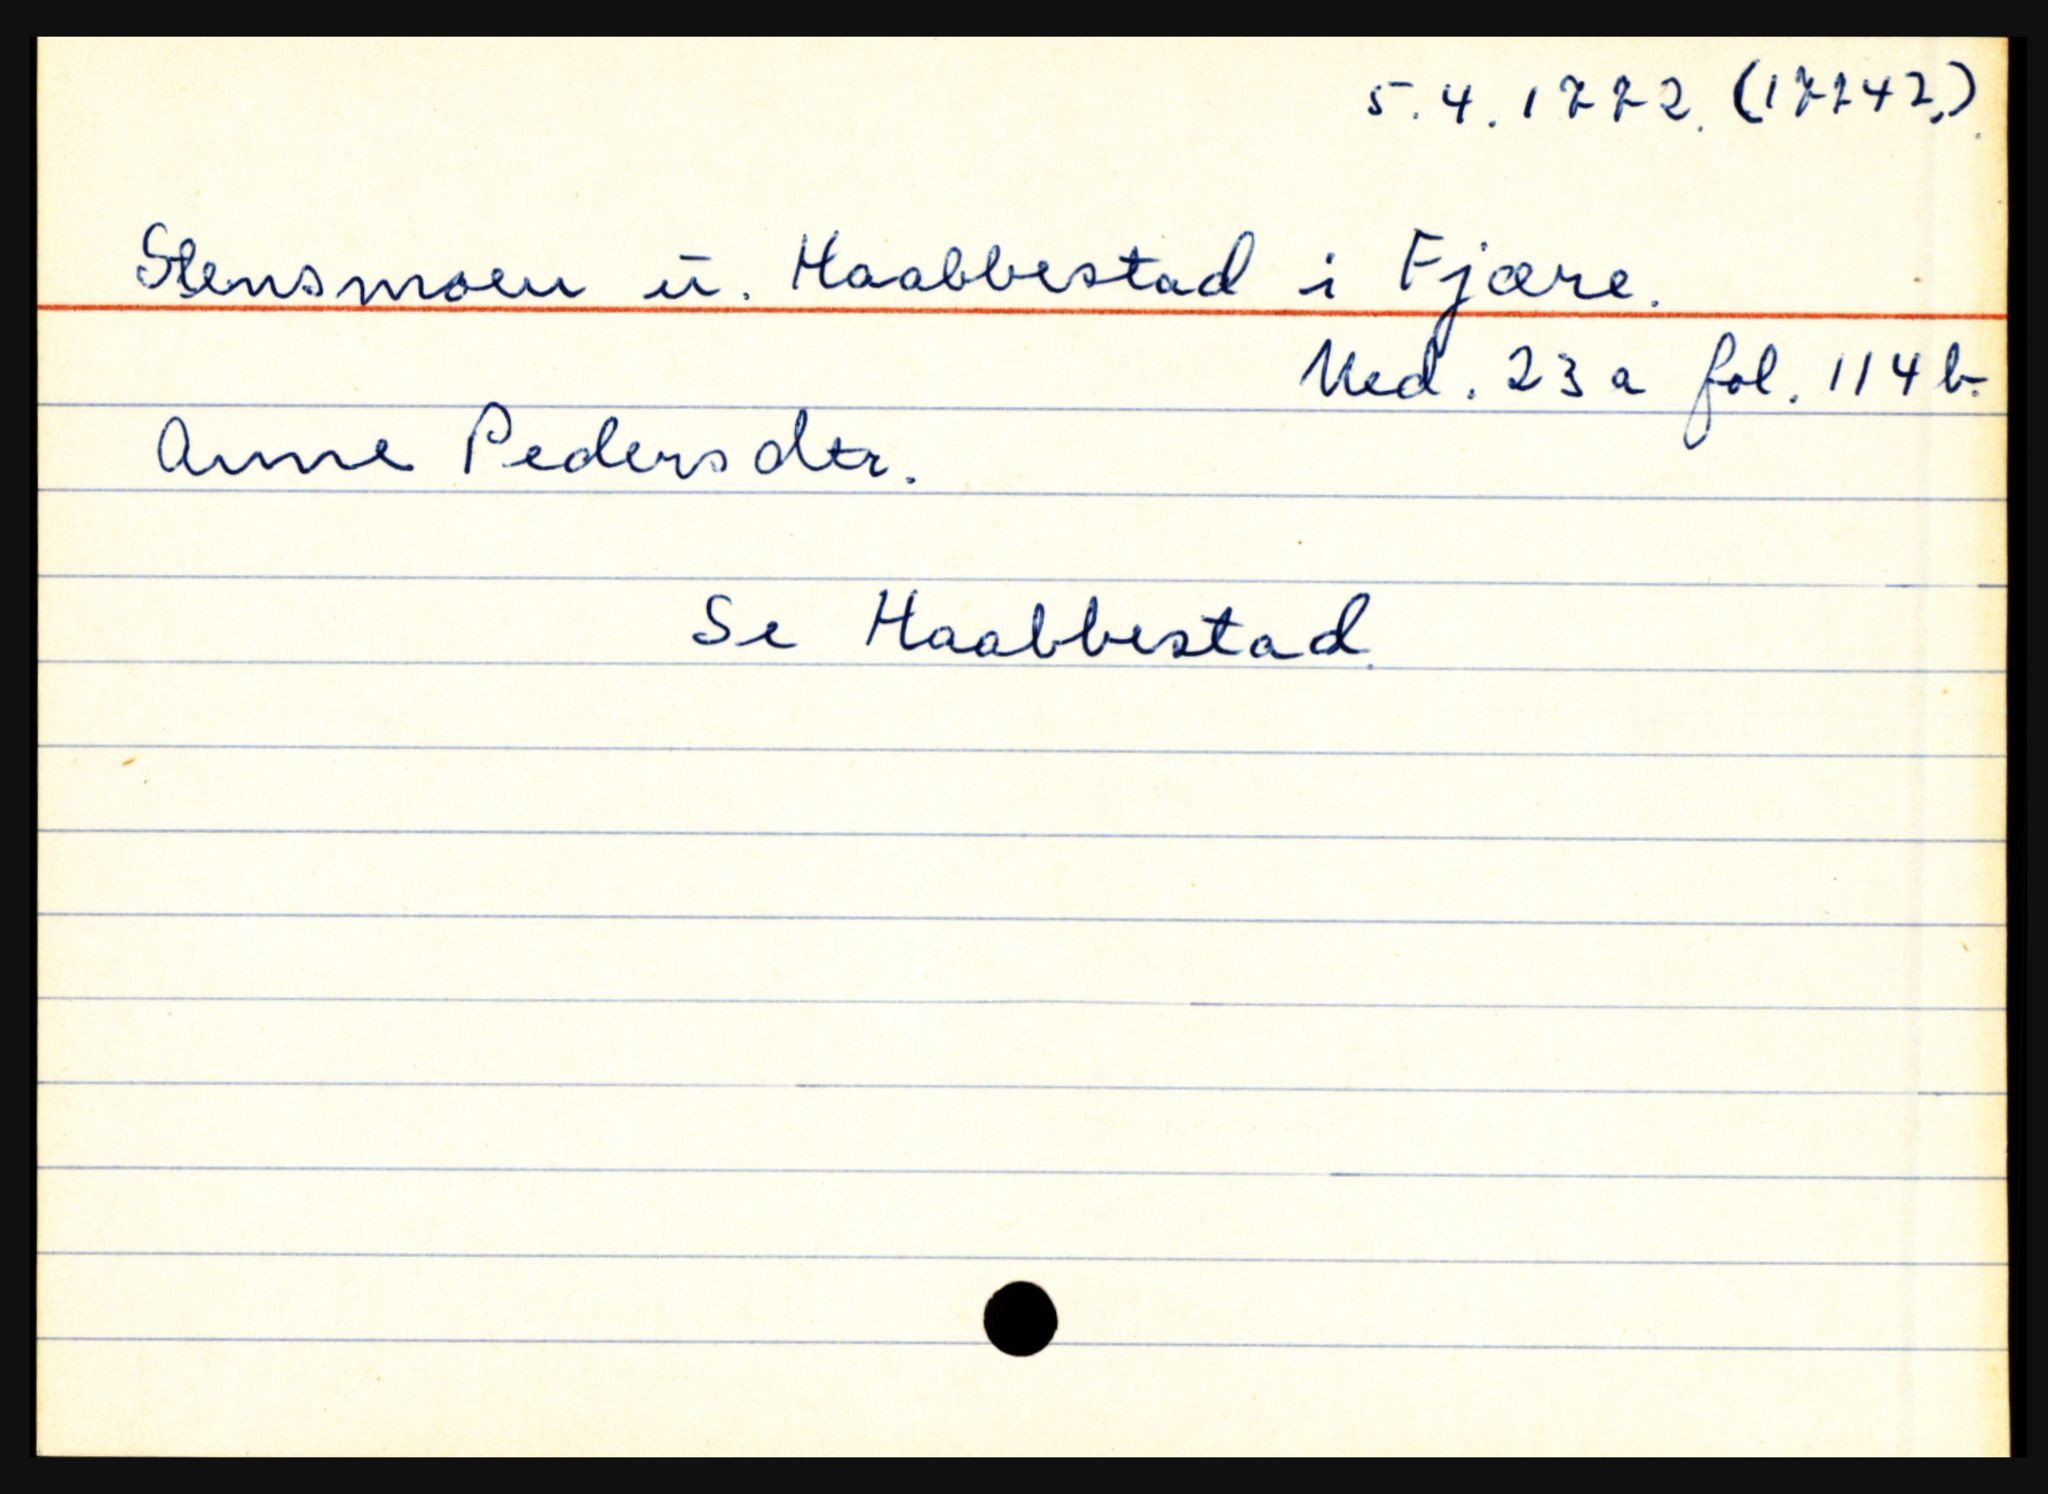 5.4.1772. (17742).
Stensmoen u. Haabbestad i Fjære.
Ned. 23 a fol. 114 b.
Anne Pedersdtr.
Se Haabbestad.